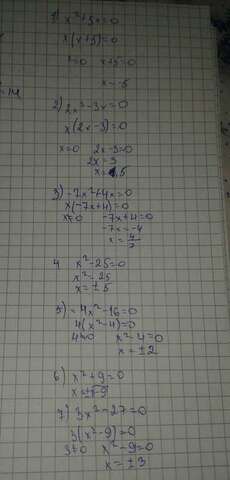 1) x²+5x=0
x(x+5)=0
x=0 x+5=0
x=-5
2) 2x²-3x=0
x(2x-3)=0
x=0 2x-3=0
2x=3
x=1,5
3) -7x²+4x=0
x(-7x+4)=0
x=0 -7x+4=0
-7x=-4
x=4/7
4 x²-25=0
x²=25
x=±5
5) 4x²-16=0
4(x²-4)=0
4≠0 x²-4=0
x=±2
6) x²+9=0
x=±√-9
7) 3x²-27=0
3(x²-9)=0
3≠0 x²-9=0
x=±3